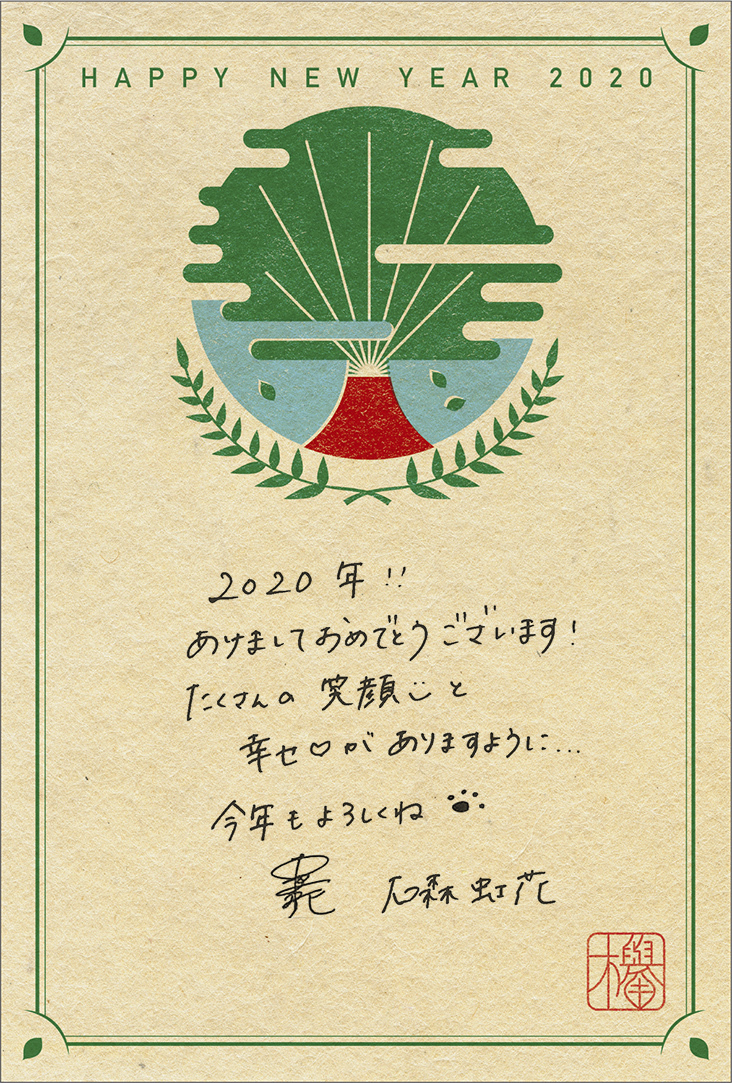 HAPPY NEW YEAR 2020
2020年!!
あけましておめでとうございます!
たくさんの笑顔と
幸せ♡がありますように...
今年もよろしくね
石森虹花
欅